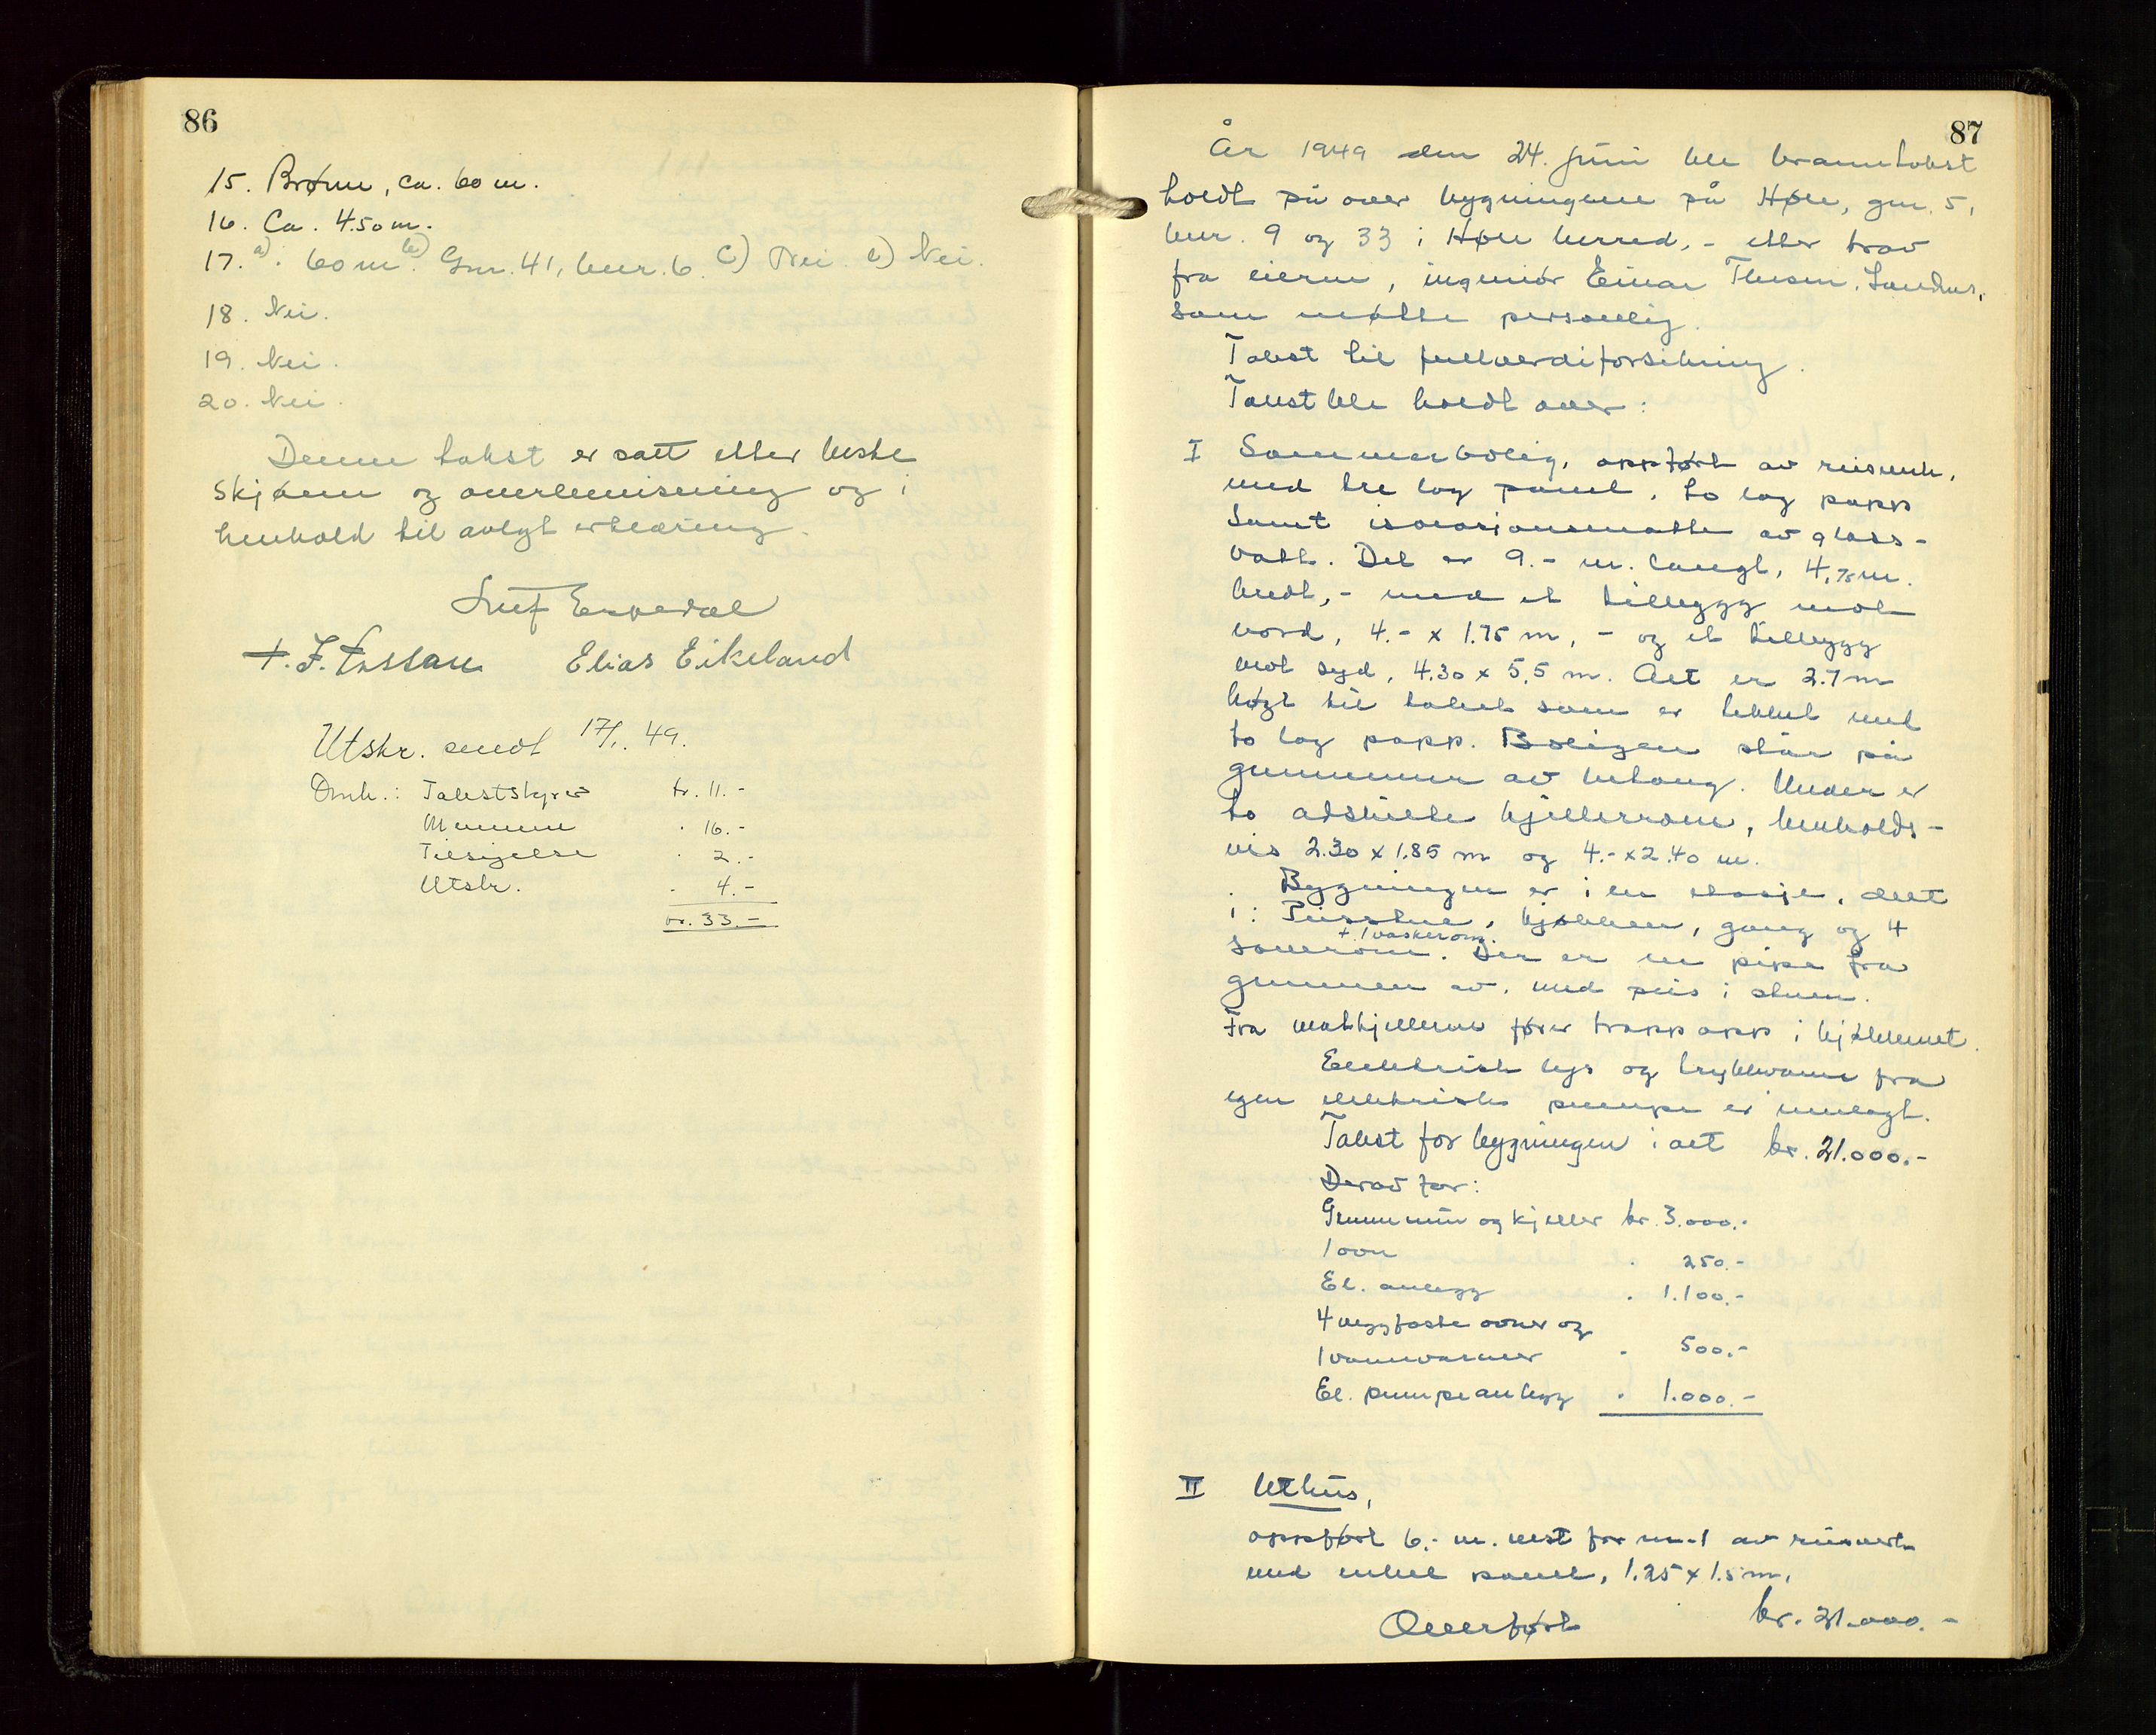 86
15. Brønn, ca. 60 m.
16. Ca. 450 m.
17. a) 60 m b) Gnr. 41, bnr. 6. c) Nei e) Nei.
18. Nei.
19. Nei.
20. Nei.
Denne takst er satt etter beste
skjønn og overbevisning og i
henhold til avlagt erklæring.
Espedal
Elias Eikeland
Utskr. sendt 17/1. 49.
Omk.: Takststyrer kr. 11.-
Mennene " 16.-
Tilsigelse " 2.-
Utskr. " 4.-
kr. 33.-
87
År 1949 den 24. juni ble branntakst
holdt på over bygningene på Høle, gnr. 5,
bnr. 9 og 33 i Høle herred, - etter krav
fra eieren, ingeniør Einar Thesen, Sandnes,
som møtte personlig.
Takst til fullverdiforsikring.
Takst ble holdt over:
I Sommerbolig, oppført av reisverk,
med tre lag panel, to lag papp
samt isolasjonsmatte av glass-
vatt. Det er 9.- m. langt, 4,75 m.
bredt, - med et tilbygg mot
nord, 4.- x 1.75 m, - og et tilbygg
mot syd, 4.30 x 5.5 m. Alt er 2.7 m
høgt til taket som er tekket med
to lag papp. Boligen står på
grunnmur av betong. Under er
to adskilte kjellerrom, henholds-
vis 2.30 x 1.85 m og 4.- x 2.40 m.
Bygningen er i en etasje, delt
i: Peisstue, kjøkken, gang og 4
+ 1 vaskerom.
soverom. Der er en pipe fra
grunnen av, med peis i stuen.
Fra matkjelleren fører trapp opp i kjøkkenet.
Elektrisk lys og trykkvann fra
egen elektrisk pumpe er innlagt.
Takst for bygningen i alt kr. 21.000.-
Derav for:
Grunnmur og kjeller kr. 3.000.-
1 ovn " 250.-
El. anlegg " 1.100.-
4 veggfaste ovner og
1 vannvarmer " 500.-
El. pumpeanlegg " 1.000.-
II Uthus,
oppført 6.- m. vest for nr. 1 av reisverk
med enkel panel, 1.25 x 1.5 m,
Overført kr. 21.000.-